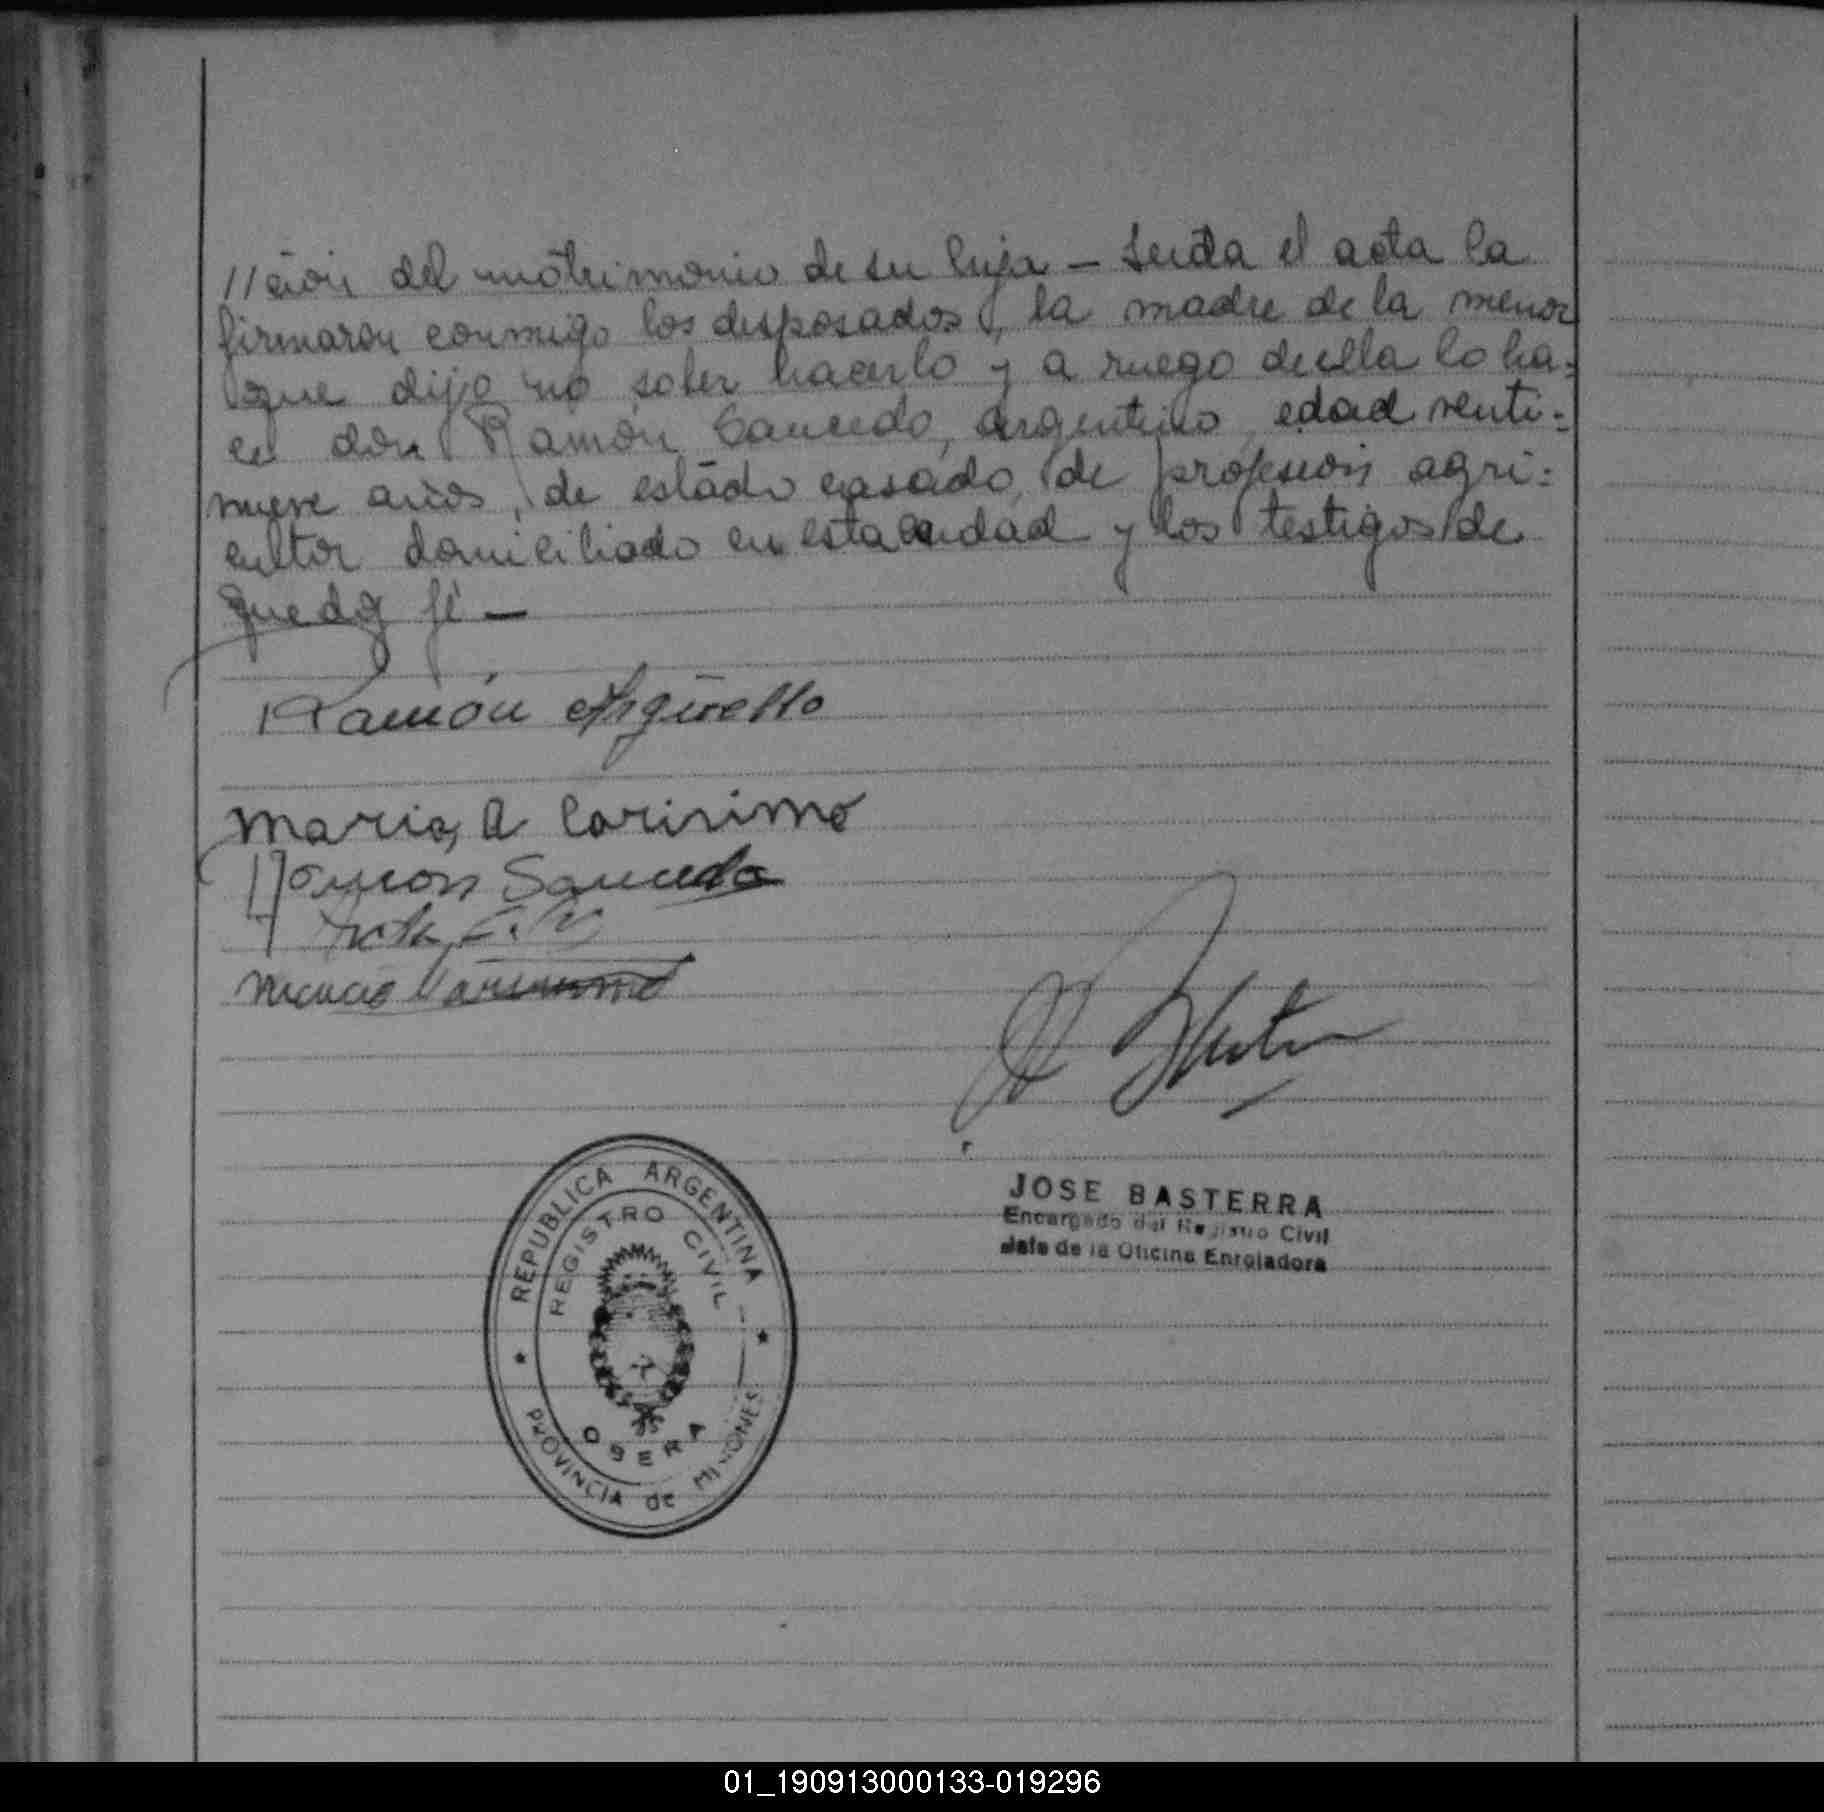 //ción del matrimonio de su hija - Leida el acta la
firmaron conmigo los desposados, la madre de la menor
que dijo no saber hacerlo y a ruego de ella lo ha=
ce don Ramón Saucedo, argentino, edad venti=
nueve años, de estado casado, de profesión agri=
cultor domiciliado en esta ciudad y los testigos de
que doy fé -
Ramón Argüello
Maria A Carisimo
Ramon Saucedo
Carisimo
JOSE BASTERRA
Encargado del Registro Civil
Jefe de la Oficina Enroladora
REPUBLICA ARGENTINA
REGISTRO CIVIL
OBERA
PROVINCIA de MISIONES
01_190913000133-019296